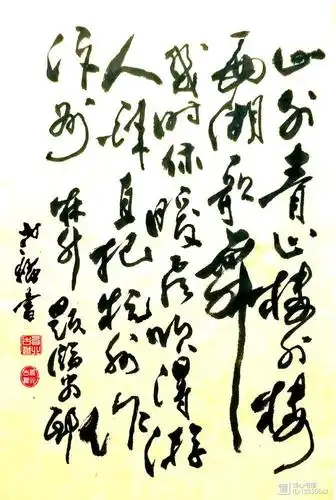 山外青山楼外楼
西湖歌舞
幾时休暖风吹得游
人醉直把杭州作
汴州 林升 题临安邸
书